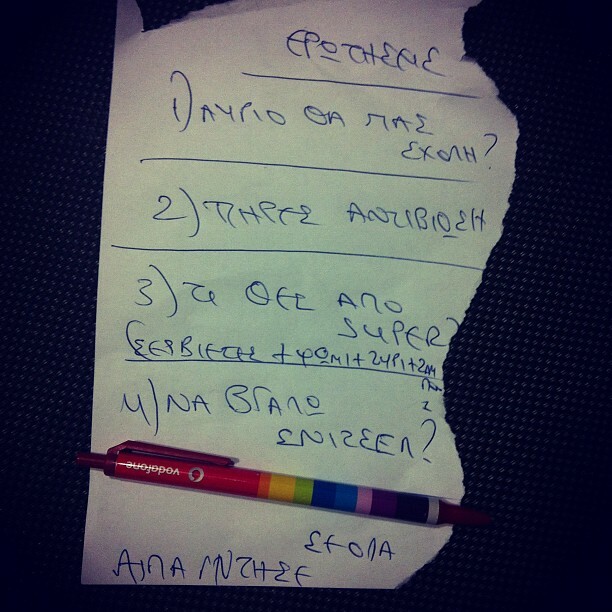 ΕΡΩΤΗΣΕΙΣ
1) ΑΥΡΙΟ ΘΑ ΠΑΣ
ΣΧΟΛΗ?
2) ΠΗΡΕΣ ΑΝΤΙΒΙΩΣΗ
3) ΤΙ ΘΕΣ ΑΠΟ
SUPER?
(ΣΕΡΒΙΕΤΕΣ + ΨΩΜΙ + ΤΥΡΙ +
4) ΝΑ ΒΓΑΛΩ
ΣΝΙΤΣΕΛ?
vodafone
ΣΧΟΛΑ
ΑΠΑΝΤΗΣΕ